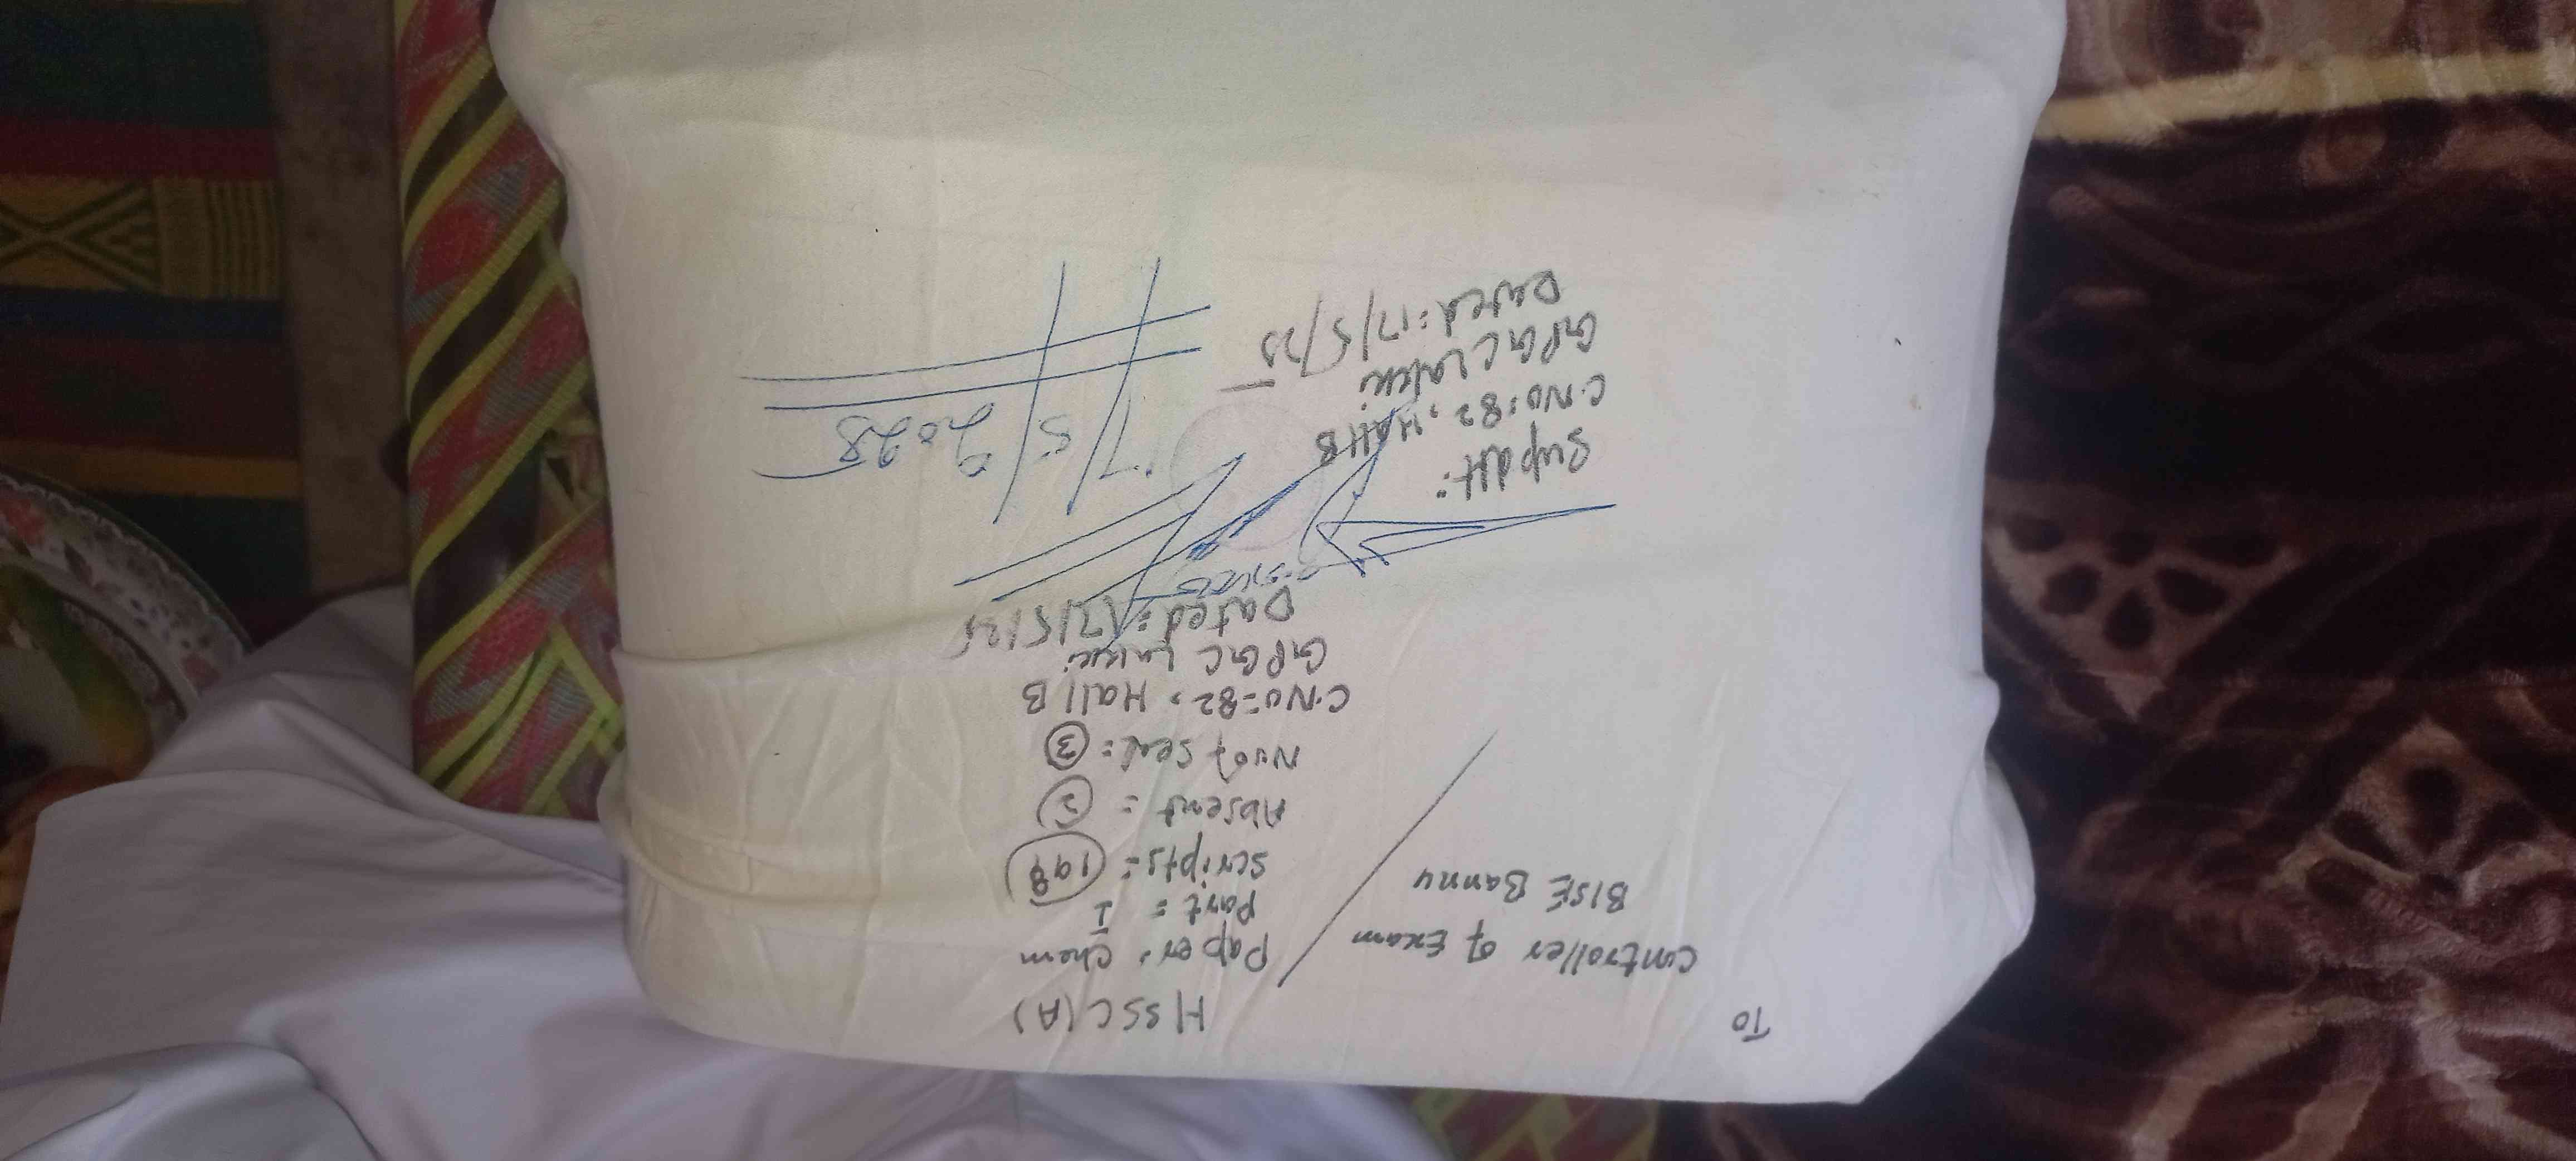 To
Controller of Exam
BISE Bannu
HSSC(A)
Paper: Chem
Part = I
Scripts = 198
Absent = 2
No of seal = 3
C.No=82, Hall B
GPGC Lakki
Dated=17/5/25
Supdtt:
C.No=82, Hall B
GPGC Lakki
Dated=17/5/25
17/5/2025